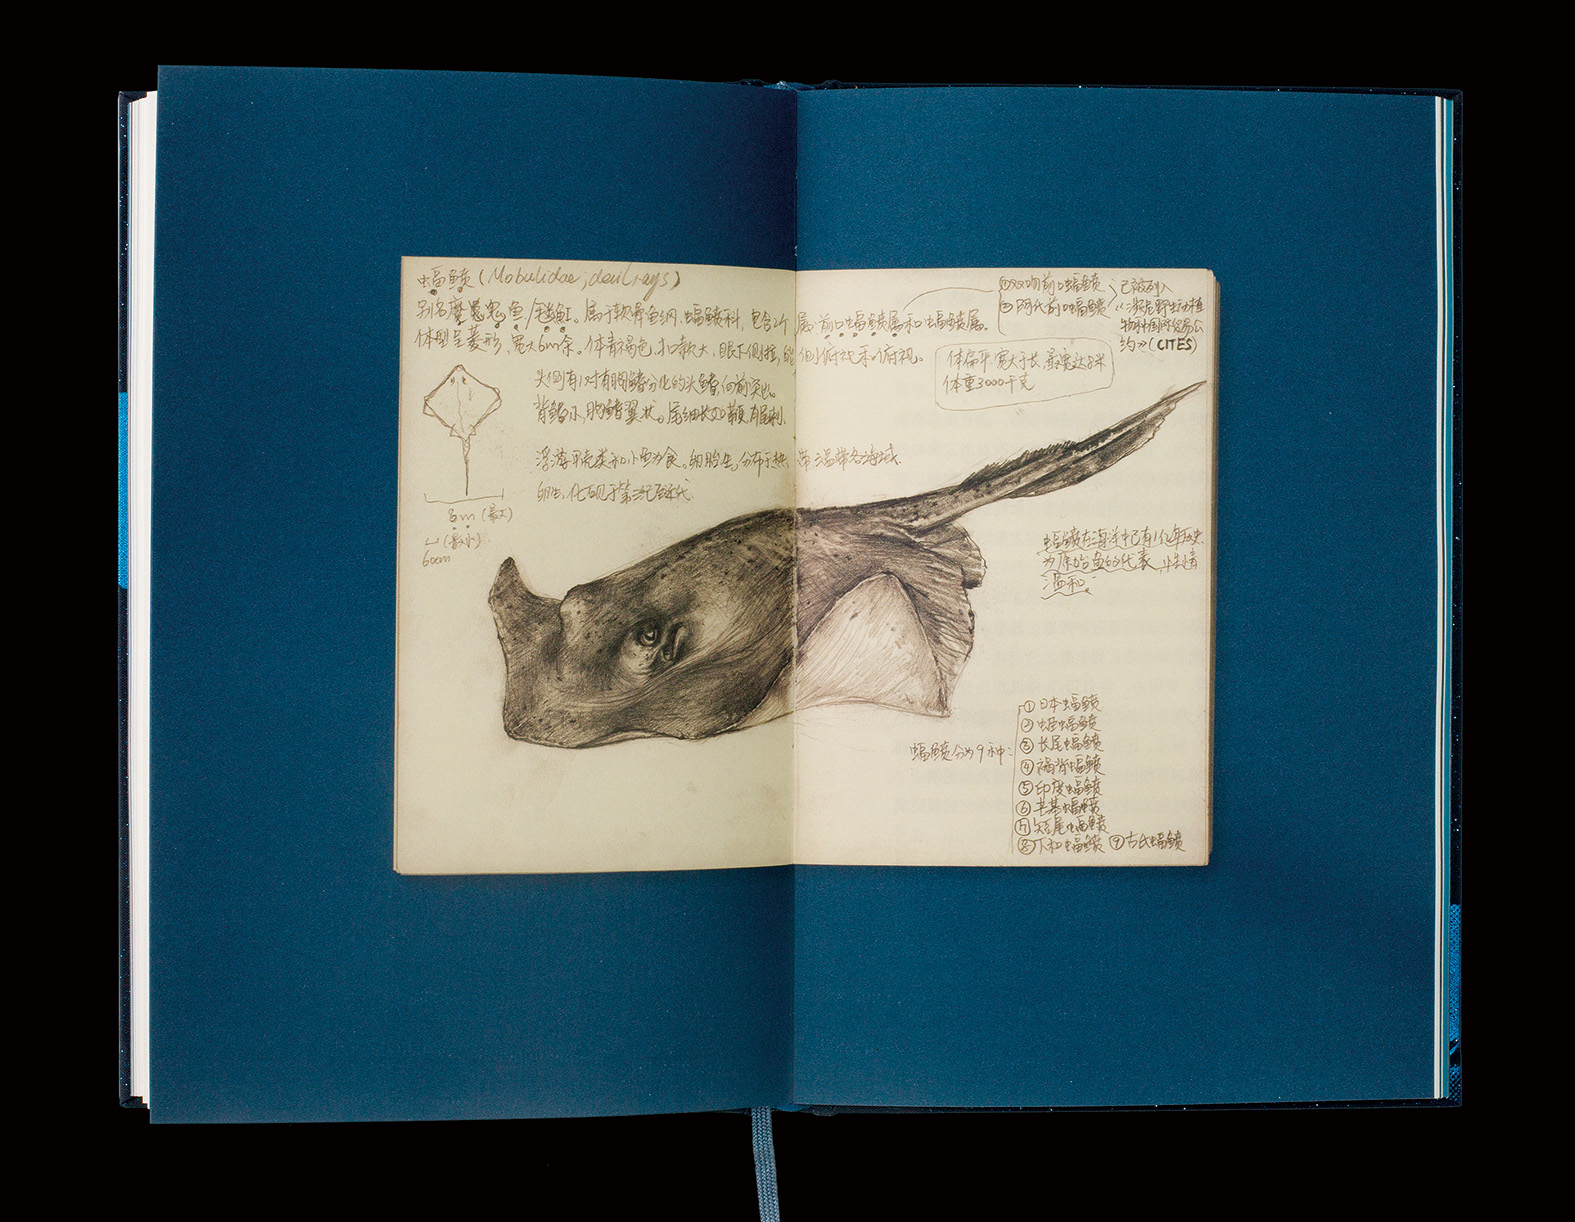 蝠鲼(Mobulidae;devil rays)
别名魔鬼鱼/毯魟。属于软骨鱼纲、蝠鲼科,包含2个属:前口蝠鲼属和蝠鲼属。
体型呈菱形、宽大6m余。体青褐色,口宽大、眼下侧位,能侧俯视和俯视。
头侧有1对有胸鳍分化的头鳍,向前突出。
背鳍小,胸鳍翼状。尾细长如鞭,有尾刺。
浮游甲壳类和小鱼为食。卵胎生,分布于热带、温带各海域。
卵生,化石见于第三纪
8m(最大)
(最小)
60cm
①双吻前口蝠鲼
②阿氏前口蝠鲼
已被列入
《濒危野生动植
物种国际贸易公
约》(CITES)
体扁平,宽大于长,最宽达8米
体重3000千克
蝠鲼在海洋中已有1亿年历史
为原始鱼的代表,性情
温和。
蝠鲼分为9种:
①日本蝠鲼
②蝠鲼
③长尾蝠鲼
④褐背蝠鲼
⑤印度蝠鲼
⑥芒基蝠鲼
⑦短尾蝠鲼
⑧下和蝠鲼 ⑨古氏蝠鲼